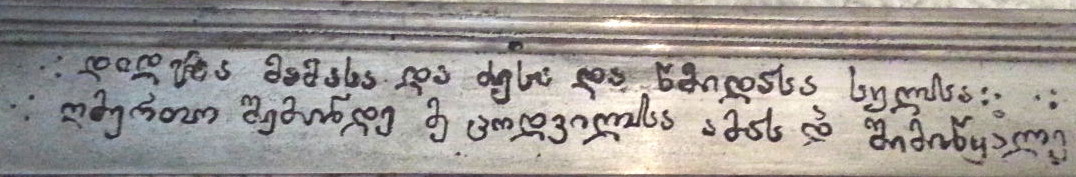 ∴ დიდება მამასა და ძესა და წმიდასა სულსა:·
∴ ღმერთო შემინდე მე ცოდვილსა ამას დ̃ შემიწყალე